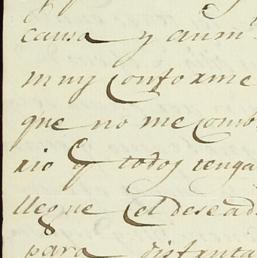 causa y aunm
muy Conforme
que no me Comb
rio y todos tenga
llegue el desead
para disfruta